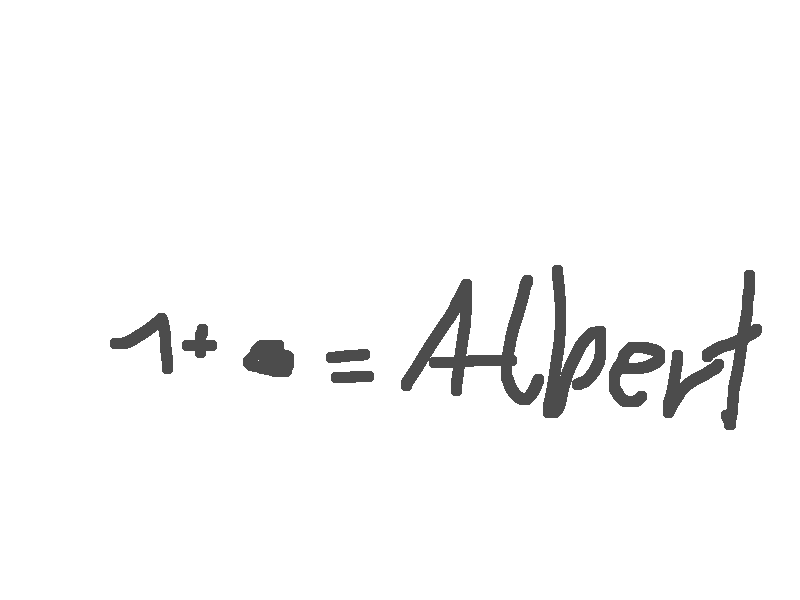 1 + = Albert